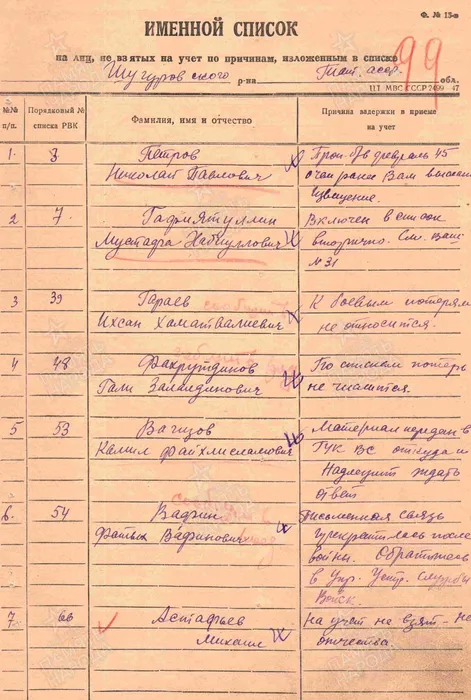 Ф. № 15-в
ИМЕННОЙ СПИСОК
на лиц, не взятых на учет по причинам, изложенным в списке
99
Шугуровского р-на Тат. асср. обл.
ЦТ МВС СССР 2499—47
№№ п/п. Порядковый № списка РВК Фамилия, имя и отчество Причина задержки в приеме на учет
1. 3 Петров
Николай Павлович
Проп. б/в февраль 45
ранее Вам выслано
извещение.
2 7 Гафиятуллин
Мустафа Хабиуллович
Включен в список
вторично. См. Ваш
№ 31
3 39 Гараев
Ихсан Хаматвалиевич
К боевым потерям
не относится.
4 48 Фахрутдинов
Гали Заландинович
По спискам потерь
не числится.
5 53 Вагизов
Камил Файхлисламович
Материал передан в
ГУК ВС откуда и
надлежит ждать
ответ
6. 54 Вафин
Фатых Вафинович
Письменная связь
прекратилась после
войны. Обратитесь
в Упр. Устр. Службы
Войск.
7 66 Астафьев
Михаил
на учет не взят - нет
отчества.